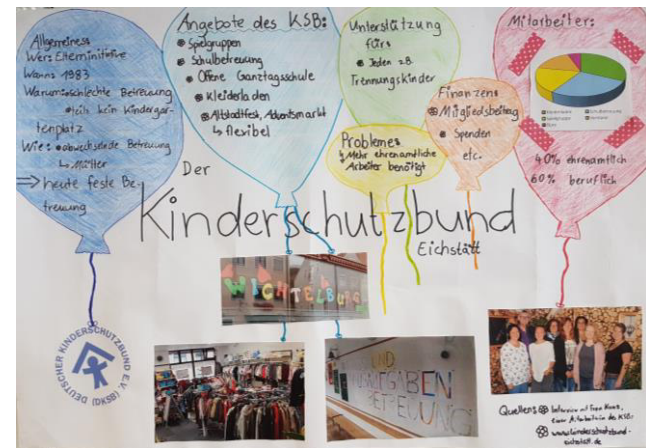 Allgemeines
Wer: Elterninitiative
Wann: 1983
Warum: schlechte Betreuung
teils kein Kindergar-
tenplatz
Wie: abwechselnde Betreuung
↳ Mütter
⇒ heute feste Be-
treuung
Angebote des KSB:
Spielgruppen
Schulbetreuung
Offene Ganztagsschule
Kleiderladen
Altstadtfest, Adventsmarkt
↳ flexibel
Unterstützung
fürs
Jeden z.B.
Trennungskinder
Probleme:
↳ Mehr ehrenamtliche
Arbeiter benötigt
Finanzen:
Mitgliedsbeitrag
Spenden
etc.
Mitarbeiter:
40% ehrenamtlich
60% beruflich
Der
Kinderschutzbund
Eichstätt
WICHTELBURG
UND
BETREUUNG
DEUTSCHER KINDERSCHUTZBUND E.V. (DKSB)
Quellen: Interview mit Frau
einer Mitarbeiterin des KSB:
www.kinderschutzbund-
eichstätt.de